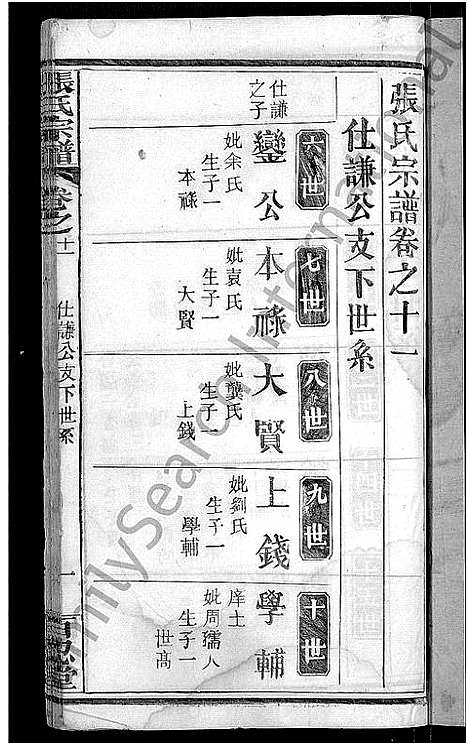 張氏宗譜卷之十一
仕謙公支下世系
六世
仕謙
之子
鑾公
妣余氏
生子一
本祿
七世
本祿
妣袁氏
生子一
大賢
八世
大賢
妣龔氏
生子一
上錢
九世
上錢
妣劉氏
生子一
學輔
十世
學輔
庠士
妣周孺人
生子一
世高
張氏宗譜
卷之十一
仕謙公支下世系
一
百忍堂
FamilySearch International